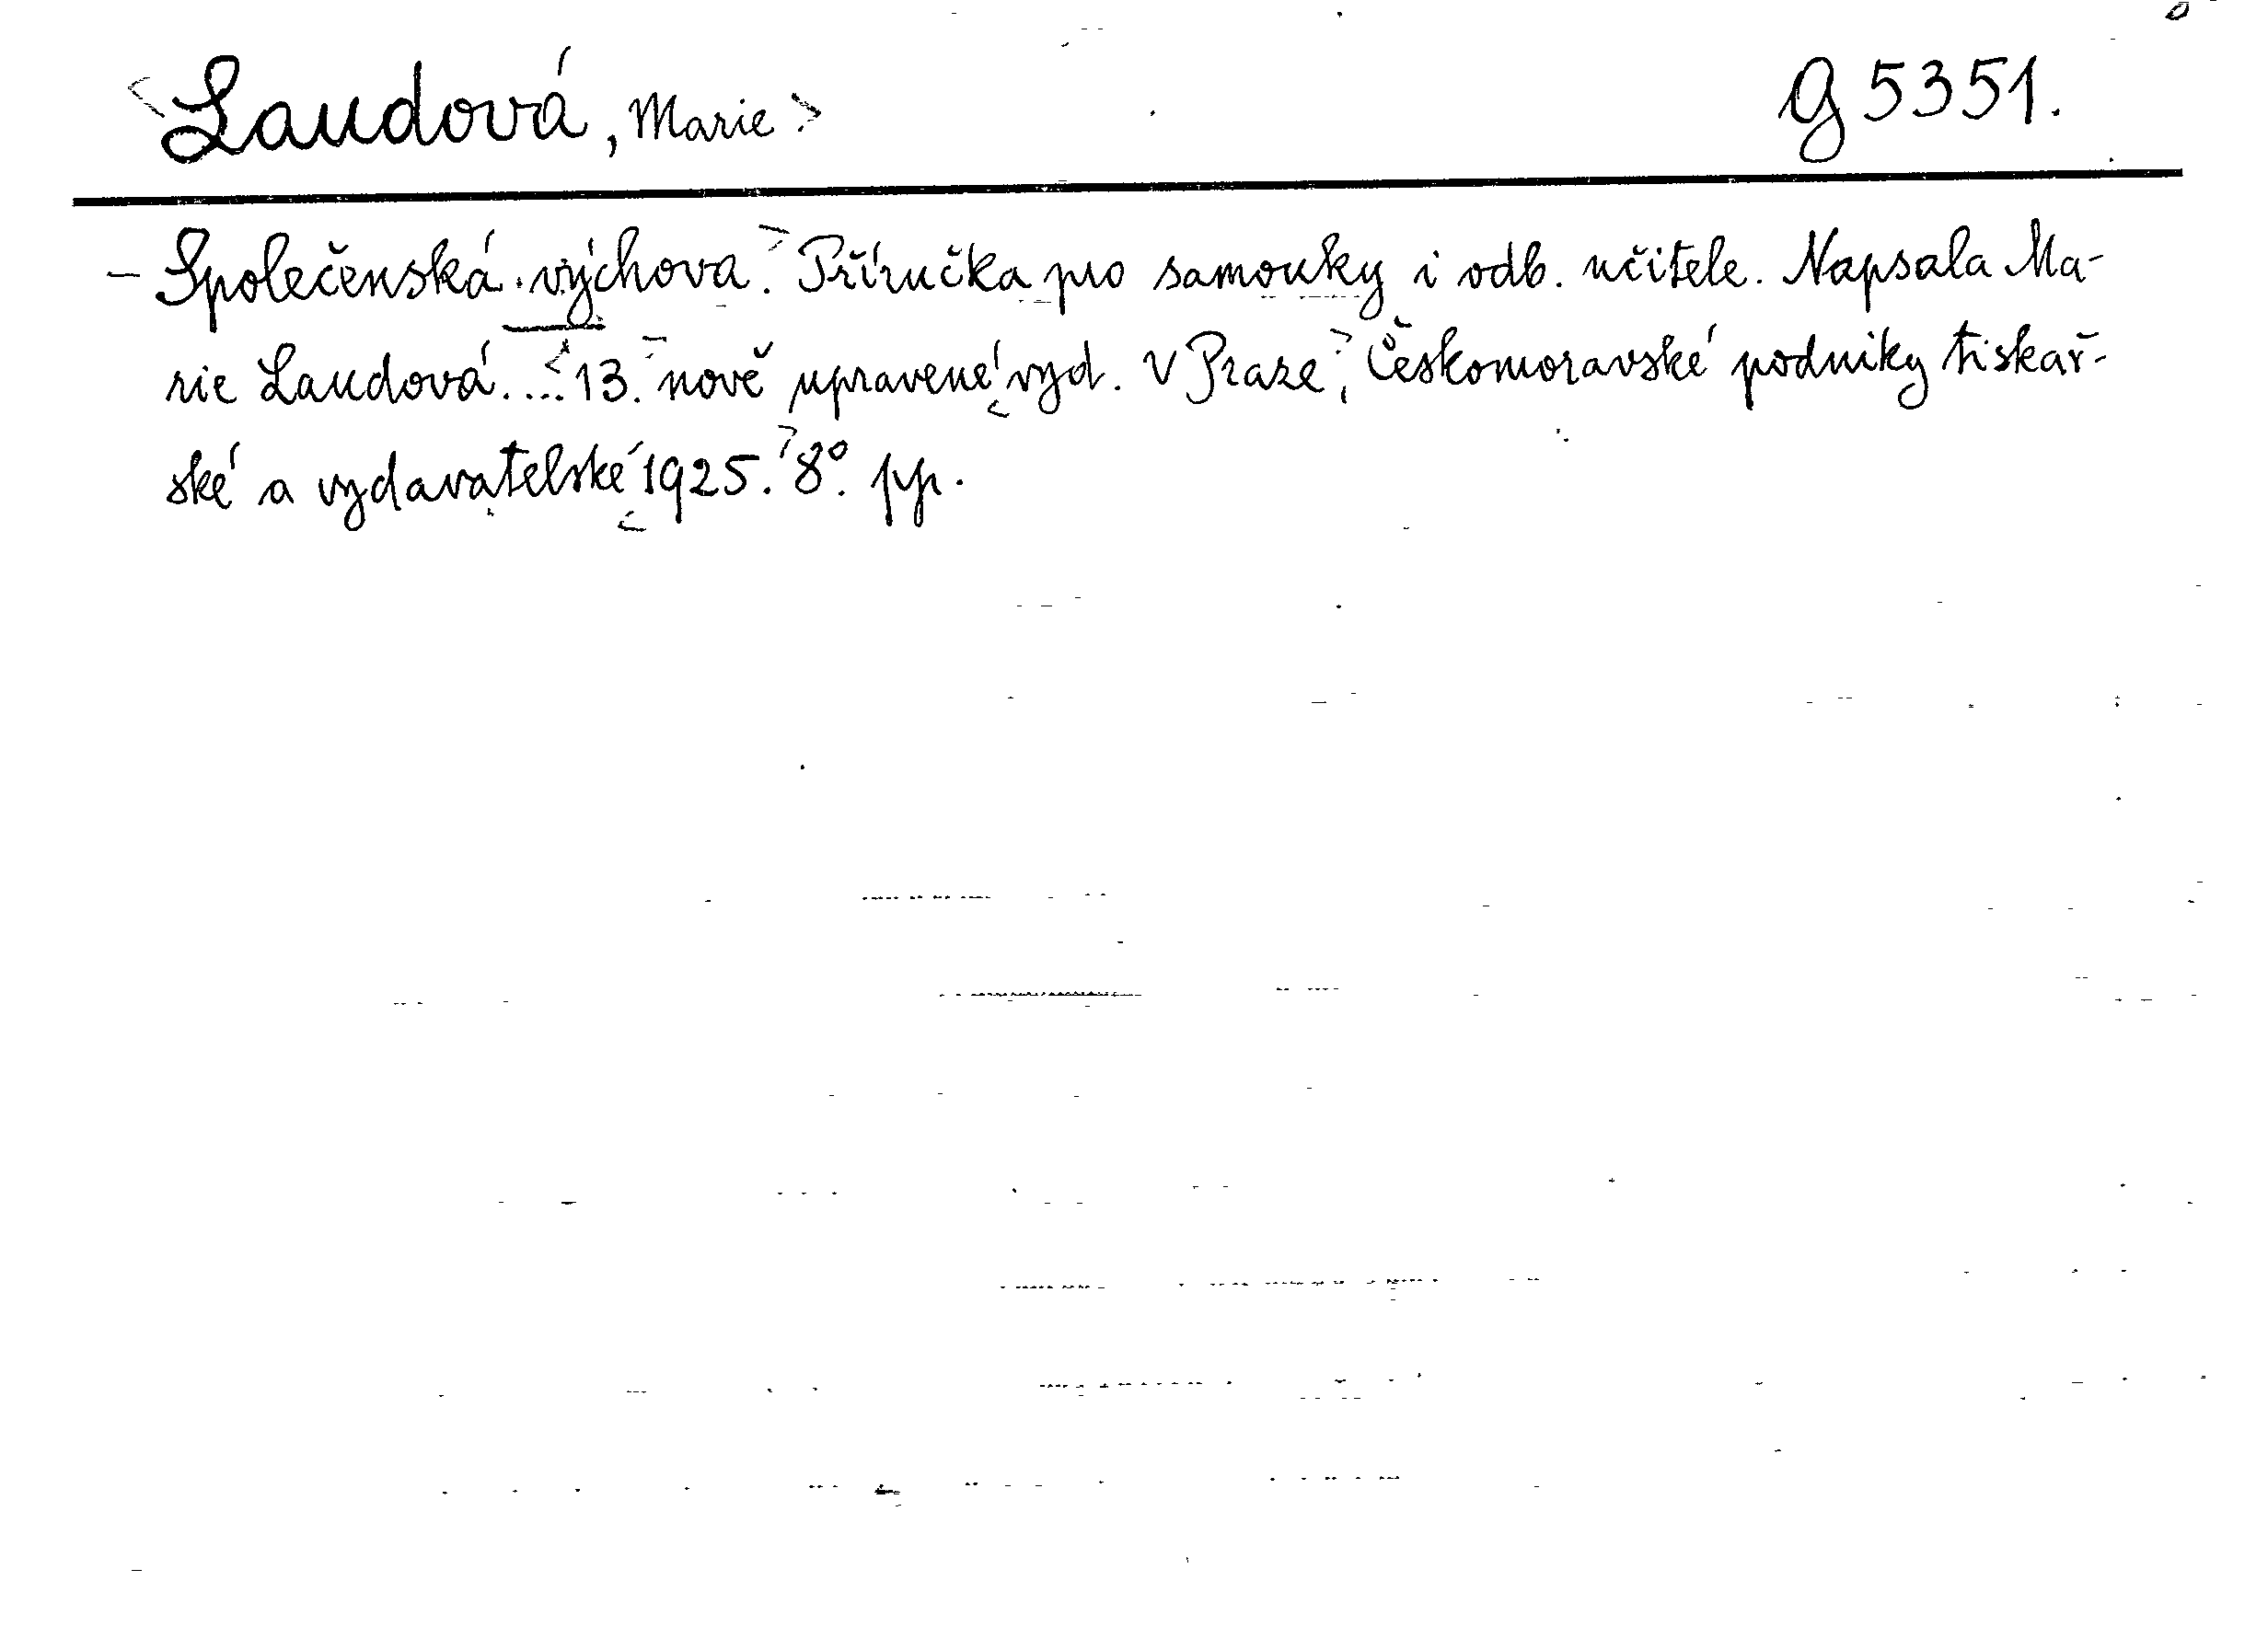 <Laudová, Marie> G 5351.
- Společenská výchova. Příručka pro samouky i odb. učitele. Napsala Ma-
rie Laudová.... 13. nově upravené vyd. V Praze, Českomoravské podniky tiskař-
ské a vydavatelské 1925. 8°. pp.